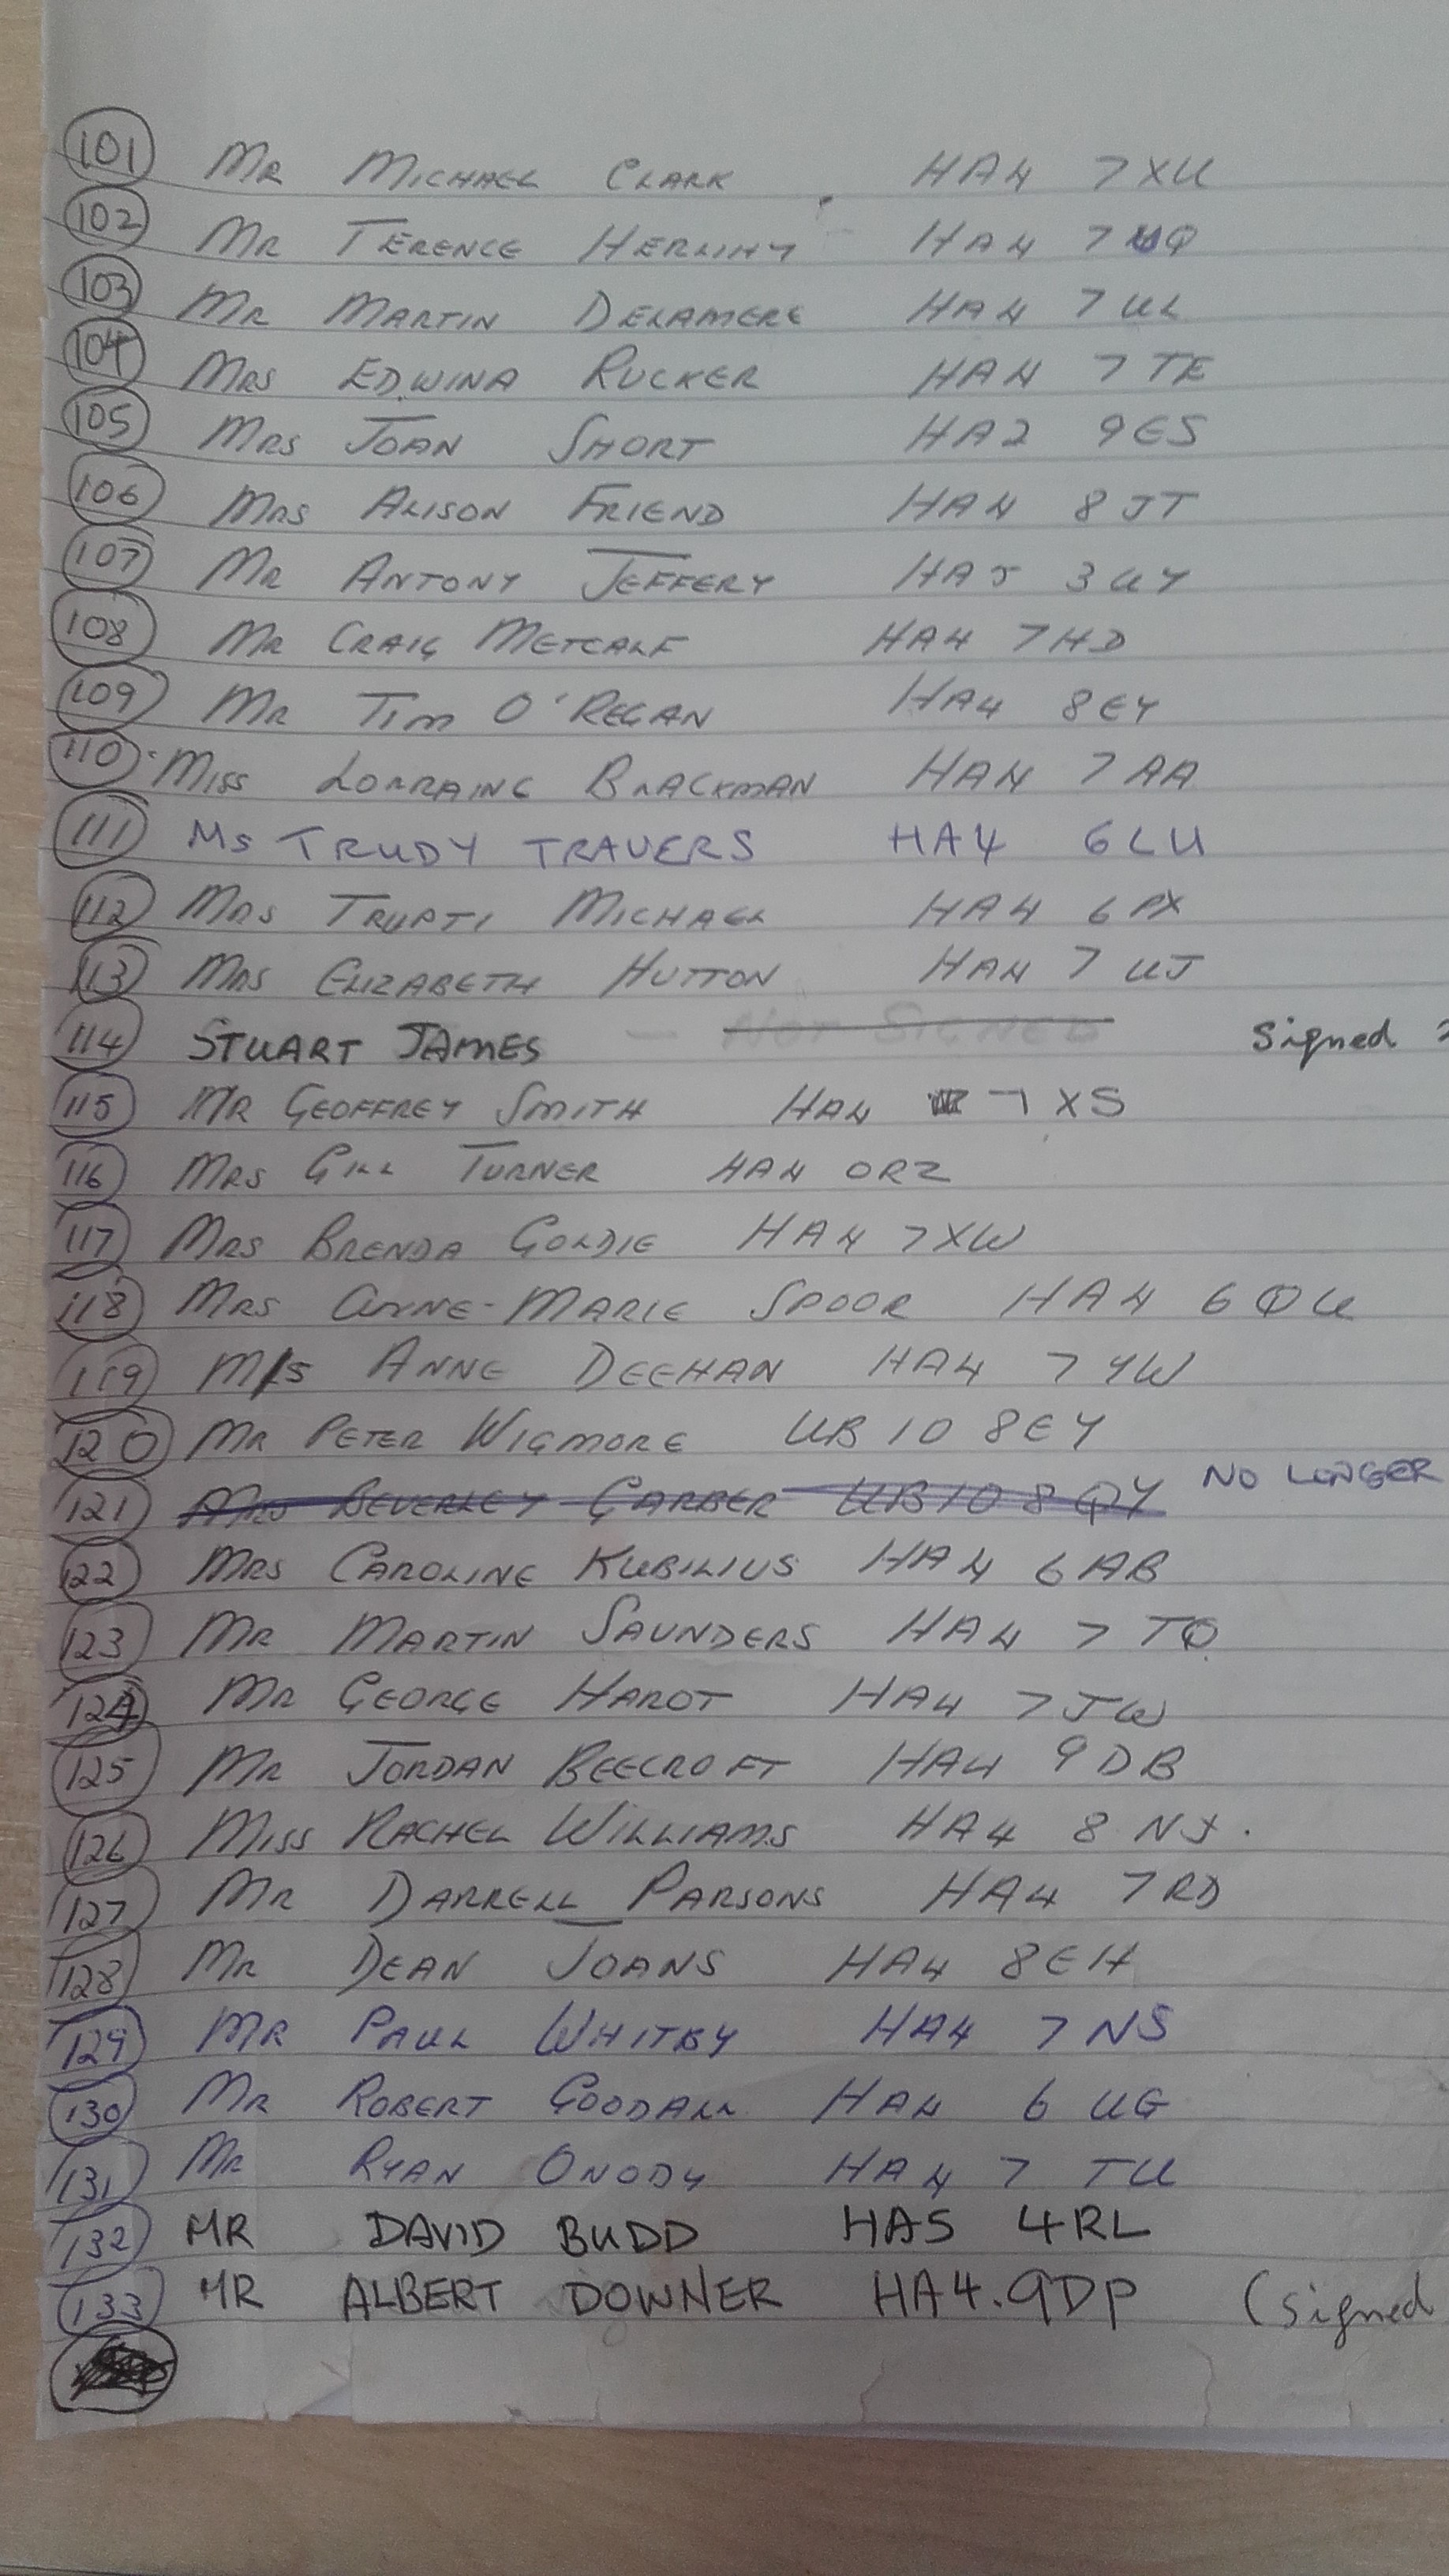 101 MR MICHAEL CLARK HA4 7XU
102 MR TERENCE HERLIHY HA4 7UQ
103 MR MARTIN DELAMERE HA4 7UL
104 MRS EDWINA RUCKER HA4 7TE
105 MRS JOAN SHORT HA2 9ES
106 MRS ALISON FRIEND HA4 8JT
107 MR ANTONY JEFFERY HA5 3UY
108 MR CRAIG METCALF HA4 7HD
109 MR TIM O'REGAN HA4 8EY
110 MISS LORRAINE BLACKMAN HA4 7AA
111 MS TRUDY TRAVERS HA4 6LU
112 MRS TRUPTI MICHAEL HA4 6PX
113 MRS ELIZABETH HUTTON HA4 7UJ
114 STUART JAMES - NOT SIGNED Signed
115 MR GEOFFREY SMITH HA4 7XS
116 MRS GILL TURNER HA4 0RZ
117 MRS BRENDA GOLDIE HA4 7XW
118 MRS ANNE-MARIE SPOOR HA4 6QU
119 M/S ANNE DEEHAN HA4 7YW
120 MR PETER WIGMORE UB10 8EY
121 MRS BEVERLEY GARBER UB10 8QY NO LONGER
122 MRS CAROLINE KUBILIUS HA4 6AB
123 MR MARTIN SAUNDERS HA4 7TQ
124 MR GEORGE HAROT HA4 7JW
125 MR JORDAN BEECROFT HA4 9DB
126 MISS RACHEL WILLIAMS HA4 8NJ.
127 MR DARRELL PARSONS HA4 7RD
128 MR DEAN JOANS HA4 8EH
129 MR PAUL WHITBY HA4 7NS
130 MR ROBERT GOODALL HA4 6UG
131 MR RYAN ONODY HA4 7TU
132 MR DAVID BUDD HA5 4RL
133 MR ALBERT DOWNER HA4.9DP (Signed